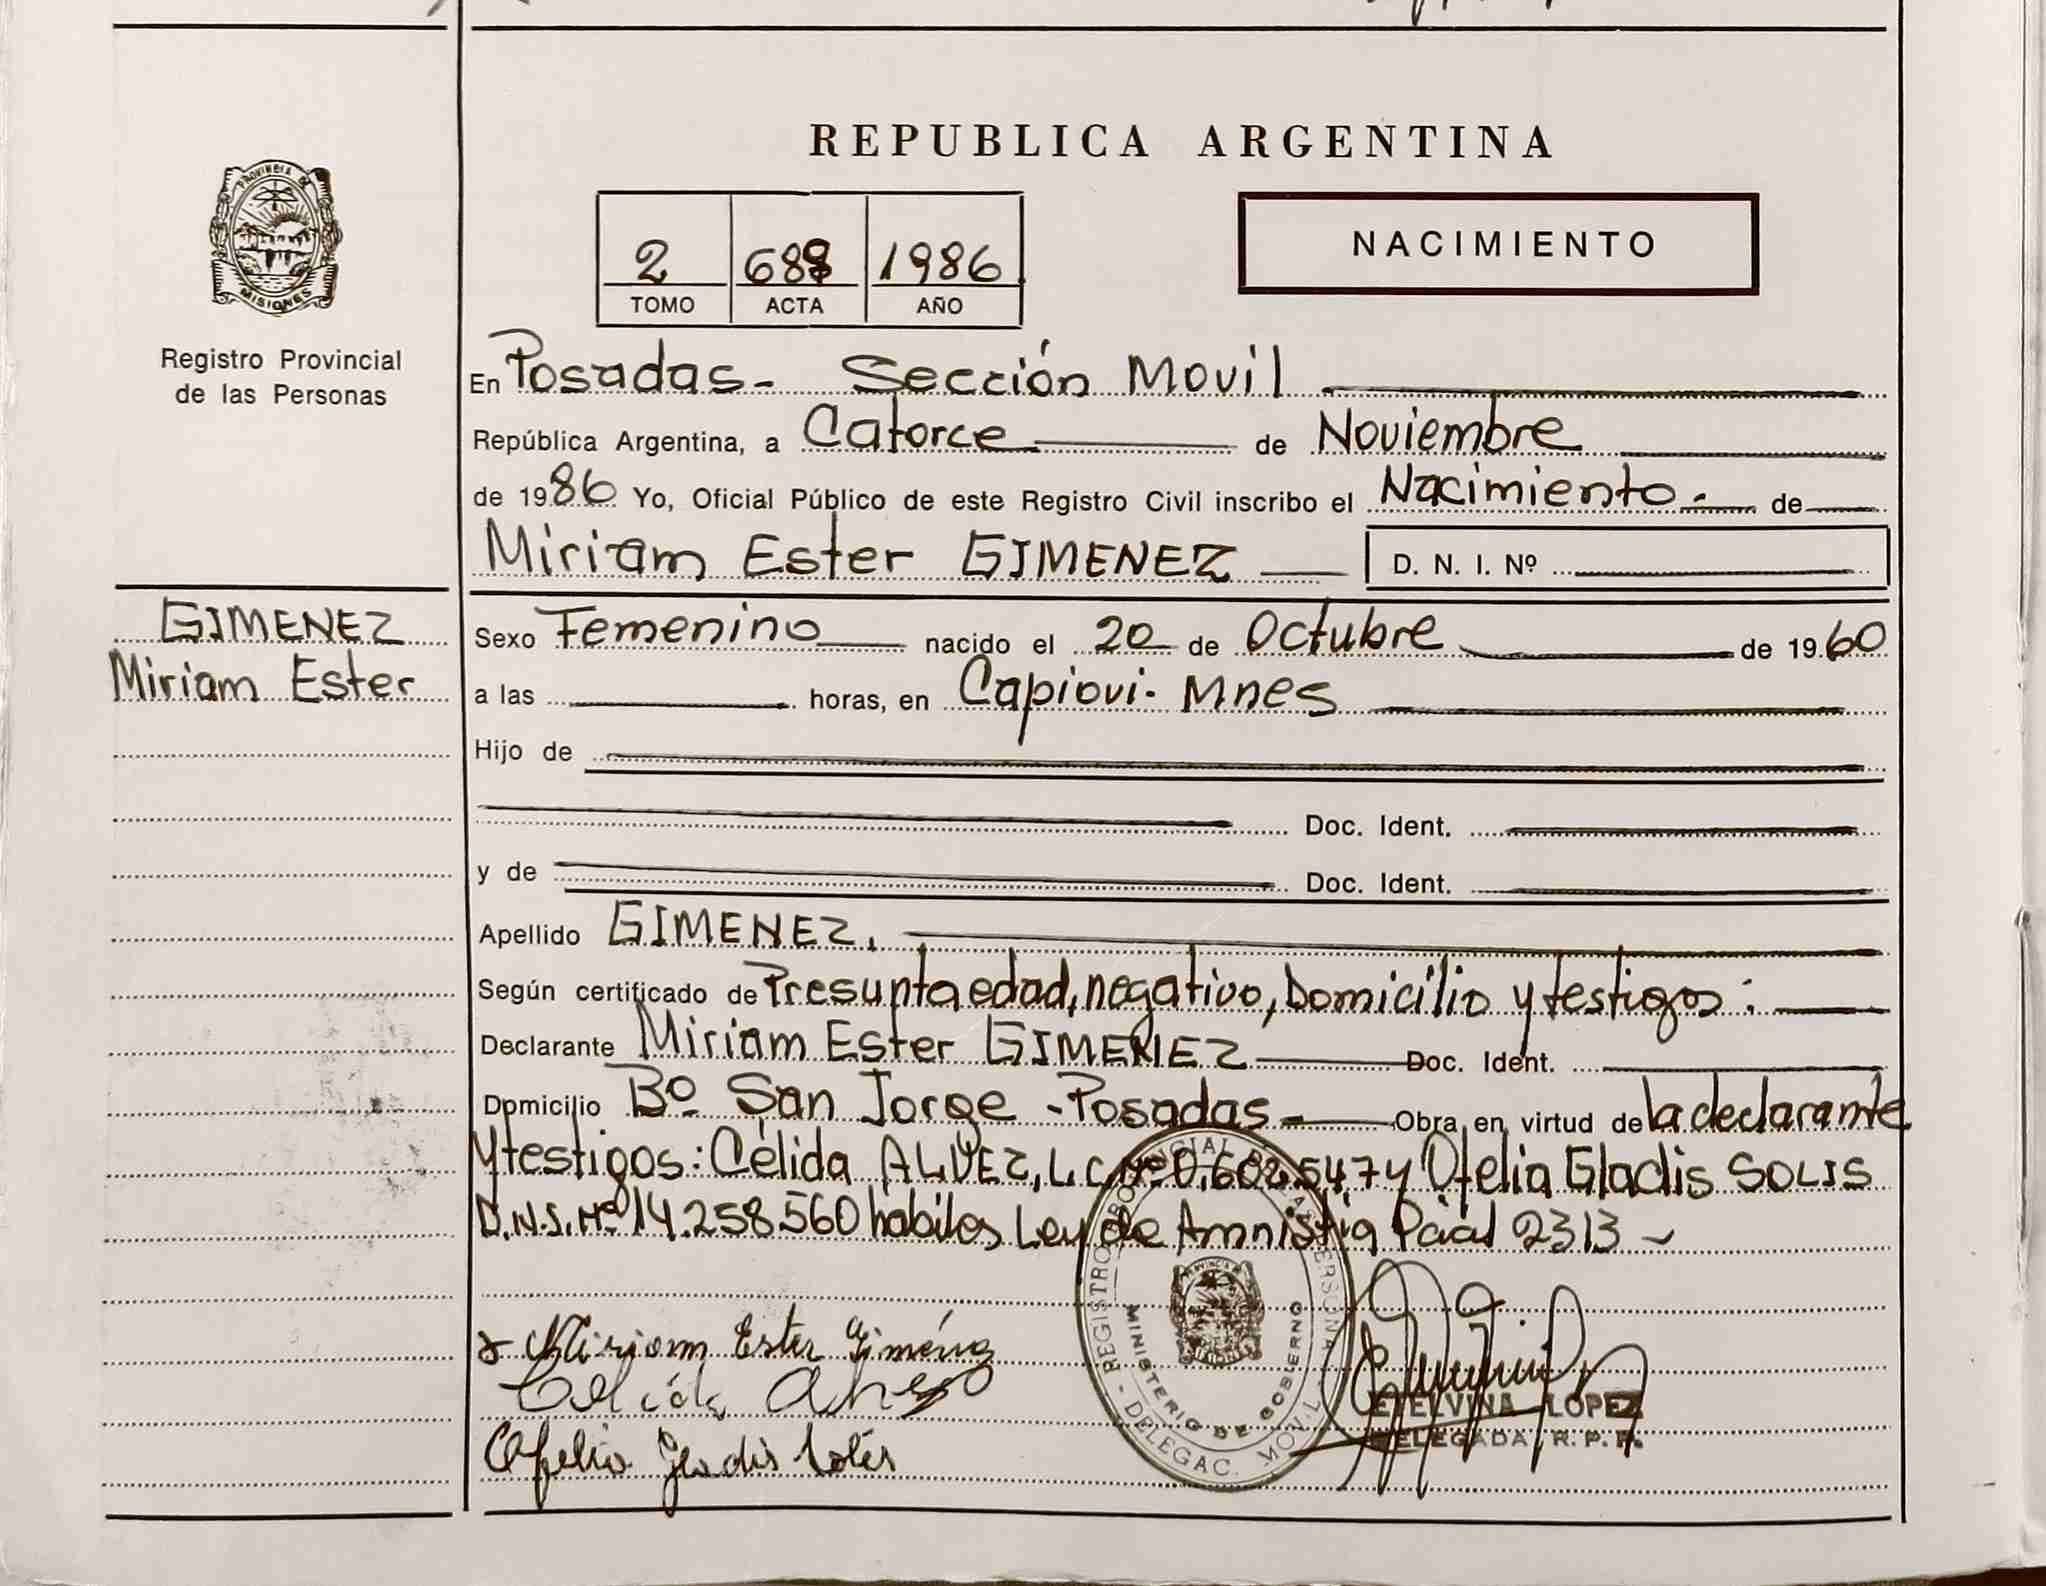 REPUBLICA ARGENTINA
PROVINCIA DE
MISIONES
Registro Provincial
de las Personas
2 1986
TOMO ACTA AÑO
NACIMIENTO
En Posadas - Sección Movil
República Argentina, a Catorce de Noviembre
de 1986 Yo, Oficial Público de este Registro Civil inscribo el Nacimiento.- de
Miriam Ester GIMENEZ D. N. I. Nº
GIMENEZ
Miriam Ester
Sexo Femenino nacido el 20 de Octubre de 1960
a las horas, en Capiovi. Mnes
Hijo de
Doc. Ident.
y de Doc. Ident.
Apellido GIMENEZ.
Según certificado de Presunta edad, negativo, Domicilio y testigos:
Declarante Miriam Ester GIMENEZ Doc. Ident.
Domicilio Bº San Jorge - Posadas - Obra en virtud de la declarante
y testigos: Célida ALVEZ, L.C. Nº 0.602.547 y Ofelia Gladis SOLIS
D.N.I. Nº 14.258.560 habiles Ley de Amnistia Pcial 2313
Miriam Ester Giménez
Celida Alvez
Ofelia Gladis Solis
REGISTRO PROVINCIAL DE LAS PERSONAS
MINISTERIO DE GOBIERNO
- DELEGAC. MOVIL -
ETELVINA LOPEZ
DELEGADA R. P. P.